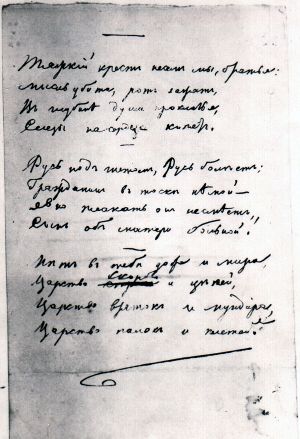 Тяжкій крестъ несемъ мы, братья:
Мысль убита, ротъ зажатъ,
Въ глубинѣ души проклятья,
Слезы на сердце кипятъ.
Русь подъ гнетомъ, Русь болѣетъ;
Гражданинъ въ тоскѣ нѣмой —
Явно плакать онъ не смѣетъ,
Сынъ объ матери больной!
Нѣтъ въ тебѣ добра и мира,
Царство скорби и цѣпей,
Царство взятокъ и мундира,
Царство палокъ и плетей!